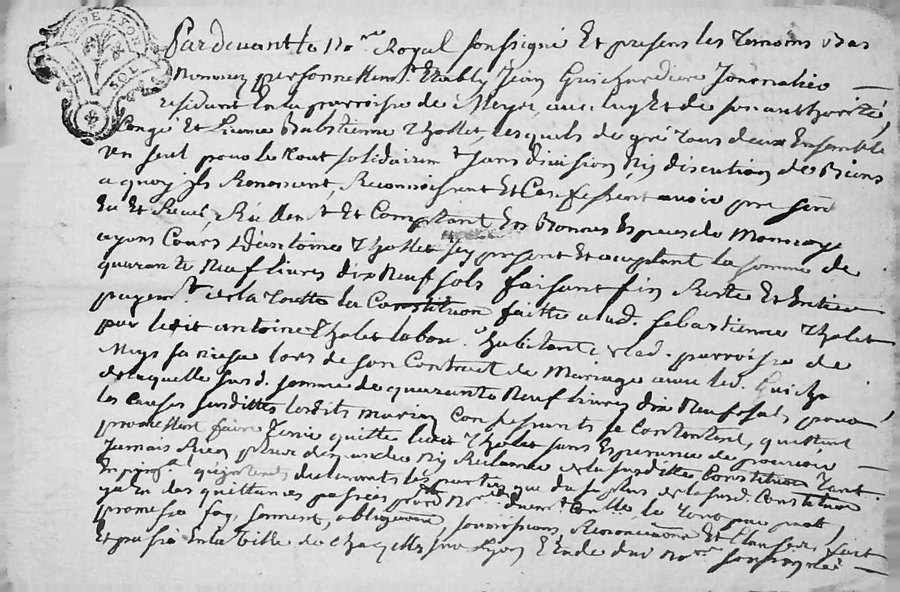 G. DE LYON
SOL
Pardevant le No.re Royal soussigné Et presens les temoins bas
nommez personnellem.t Estably Jean Guichardiere Journalier
residant En la parroisse de Meys, avec luy Et de son authorité,
Congé Et licence Sebastienne Thollet, lesquels de gré tous deux Ensemble
un seul pour le tout solidairem.t sans division Ny discution de Biens
a quoy ils Renoncent, Reconnoissent Et Confessent avoir
Eu Et Receu Réellem.t Et Comptant En Bonnes Especes de Monnoye
ayant Cours d'Antoine Thollet Icy present Et acceptant la somme de
quarante Neuf livres dix Neuf sols faisant fin Reste Et Entier
payem.t de la Constitution faitte a lad. Sebastienne Tholet
par ledit antoine Tholet labou.r habitant de lad. parroisse de
Meys lors de son Contract de Mariage avec led. Guicha
de laquelle susd. somme de quarante Neuf livres dix Neuf sols pour
les causes susdittes lesdits mariez Confessants se Contentent, quittent
promettent faire tenir quitte ledit Tholet sans Esperance de pouvoir
Jamais Rien plus demander Ny Reclamer de la susditte Constitution
declarants les parties que du surplus de la susd. Constitution
y a eu des quittances passées
promesse foy, serment, obligaõn, soumissions, Renonciaõns Et Clauses, fait
Et passé En la Ville de Chazelles sur Lyon Etude du No.re soussigné